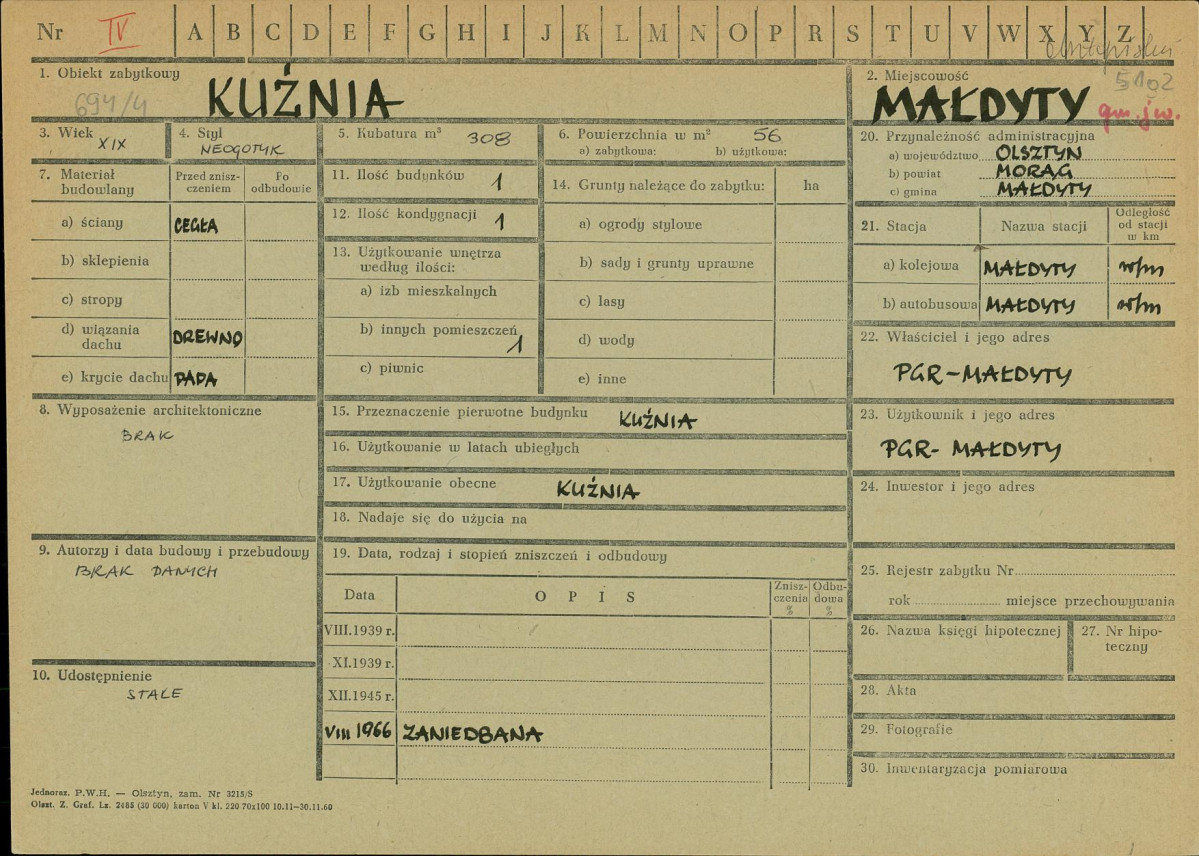 Nr IV A B C D E F G H I J K L M N O P R S T U V W X Y Z
1. Obiekt zabytkowy
694/4 KUŹNIA
2. Miejscowość 5102
MAŁDYTY gm. jw.
3. Wiek
XIX
4. Styl
NEOGOTYK
5. Kubatura m³ 308
6. Powierzchnia w m² 56
a) zabytkowa: b) użytkowa:
7. Materiał
budowlany
Przed znisz-
czeniem
Po
odbudowie
a) ściany CEGŁA
b) sklepienia
c) stropy
d) wiązania
dachu DREWNO
e) krycie dachu PAPA
8. Wyposażenie architektoniczne
BRAK
9. Autorzy i data budowy i przebudowy
BRAK DANYCH
10. Udostępnienie
STAŁE
11. Ilość budynków 1
12. Ilość kondygnacji 1
13. Użytkowanie wnętrza
według ilości:
a) izb mieszkalnych
b) innych pomieszczeń 1
c) piwnic
14. Grunty należące do zabytku: ha
a) ogrody stylowe
b) sady i grunty uprawne
c) lasy
d) wody
e) inne
15. Przeznaczenie pierwotne budynku KUŹNIA
16. Użytkowanie w latach ubiegłych
17. Użytkowanie obecne KUŹNIA
18. Nadaje się do użycia na
19. Data, rodzaj i stopień zniszczeń i odbudowy
Data OPIS
Znisz-
czenia
%
Odbu-
dowa
%
VIII.1939 r.
XI.1939 r.
XII.1945 r.
VIII 1966 ZANIEDBANA
20. Przynależność administracyjna
a) województwo OLSZTYN
b) powiat MORĄG
c) gmina MAŁDYTY
21. Stacja Nazwa stacji
Odległość
od stacji
w km
a) kolejowa MAŁDYTY w/m
b) autobusowa MAŁDYTY w/m
22. Właściciel i jego adres
PGR-MAŁDYTY
23. Użytkownik i jego adres
PGR- MAŁDYTY
24. Inwestor i jego adres
25. Rejestr zabytku Nr
rok miejsce przechowywania
26. Nazwa księgi hipotecznej
27. Nr hipo-
teczny
28. Akta
29. Fotografie
30. Inwentaryzacja pomiarowa
Jednoraz. P.W.H. — Olsztyn, zam. Nr 3215/S
Olszt. Z. Graf. Lz. 2485 (30 000) karton V kl. 220 70x100 10.11—30.11.60